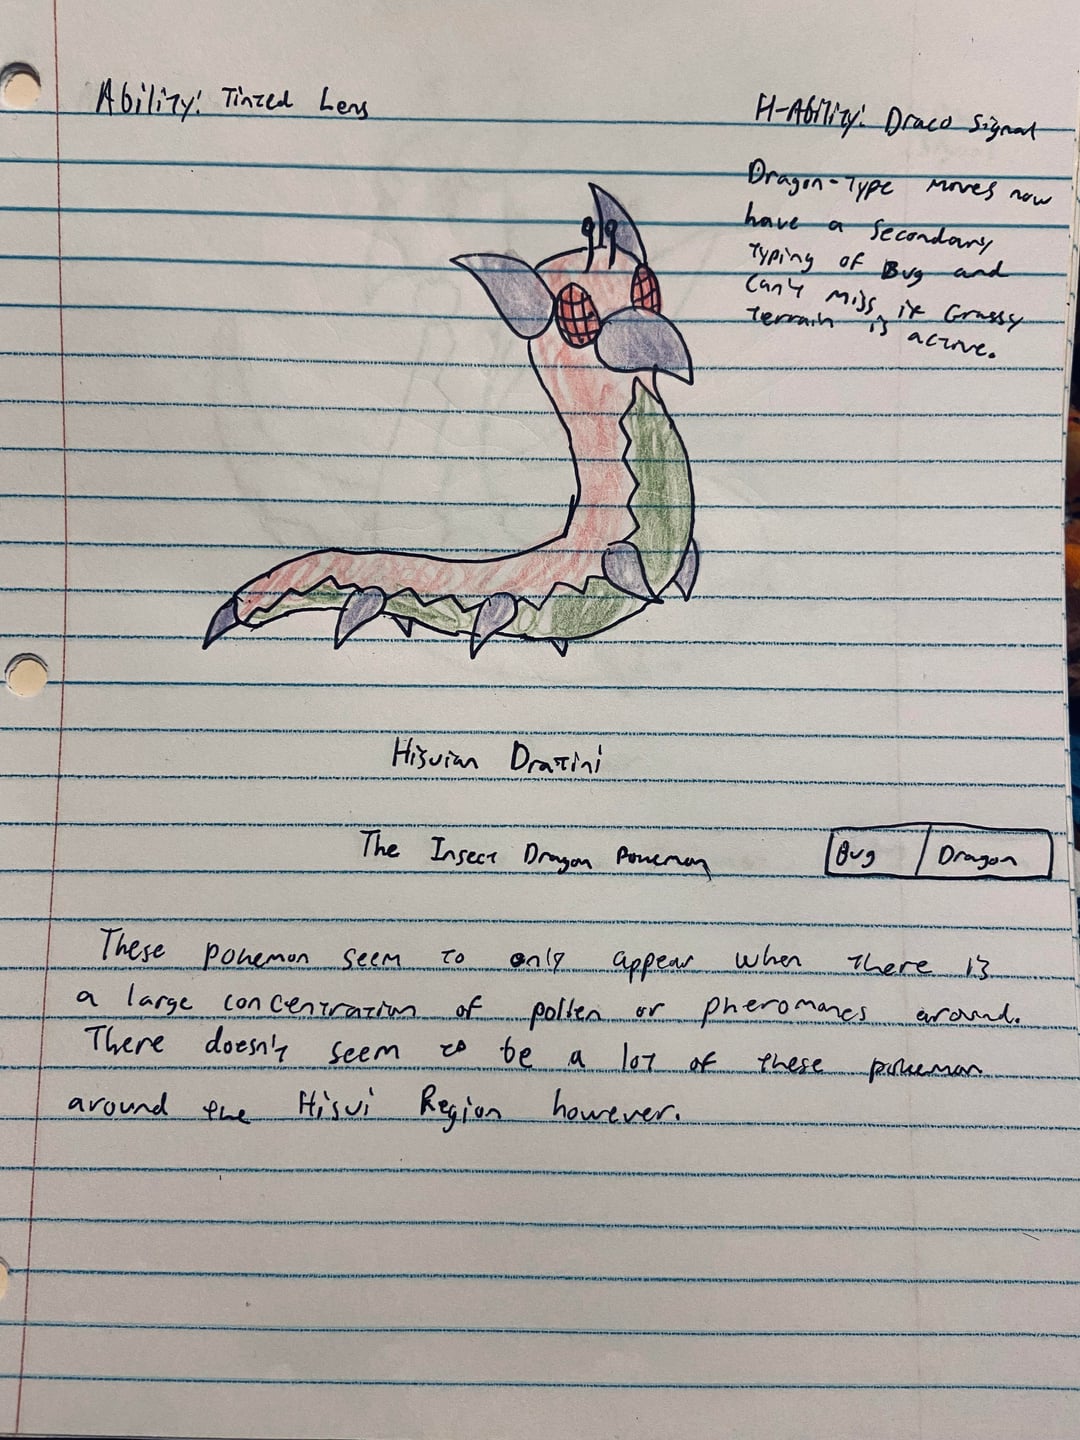 Ability: Tinted Lens
H-Ability: Draco Signal
Dragon-Type moves now
have a secondary
typing of Bug and
can't miss if Grassy
terrain is active.
Hisuian Dratini
The Insect Dragon Pokemon
Bug / Dragon
These pokemon seem to only appear when there is
a large concentration of pollen or pheromones around.
There doesn't seem to be a lot of these pokemon
around the Hisui Region however.